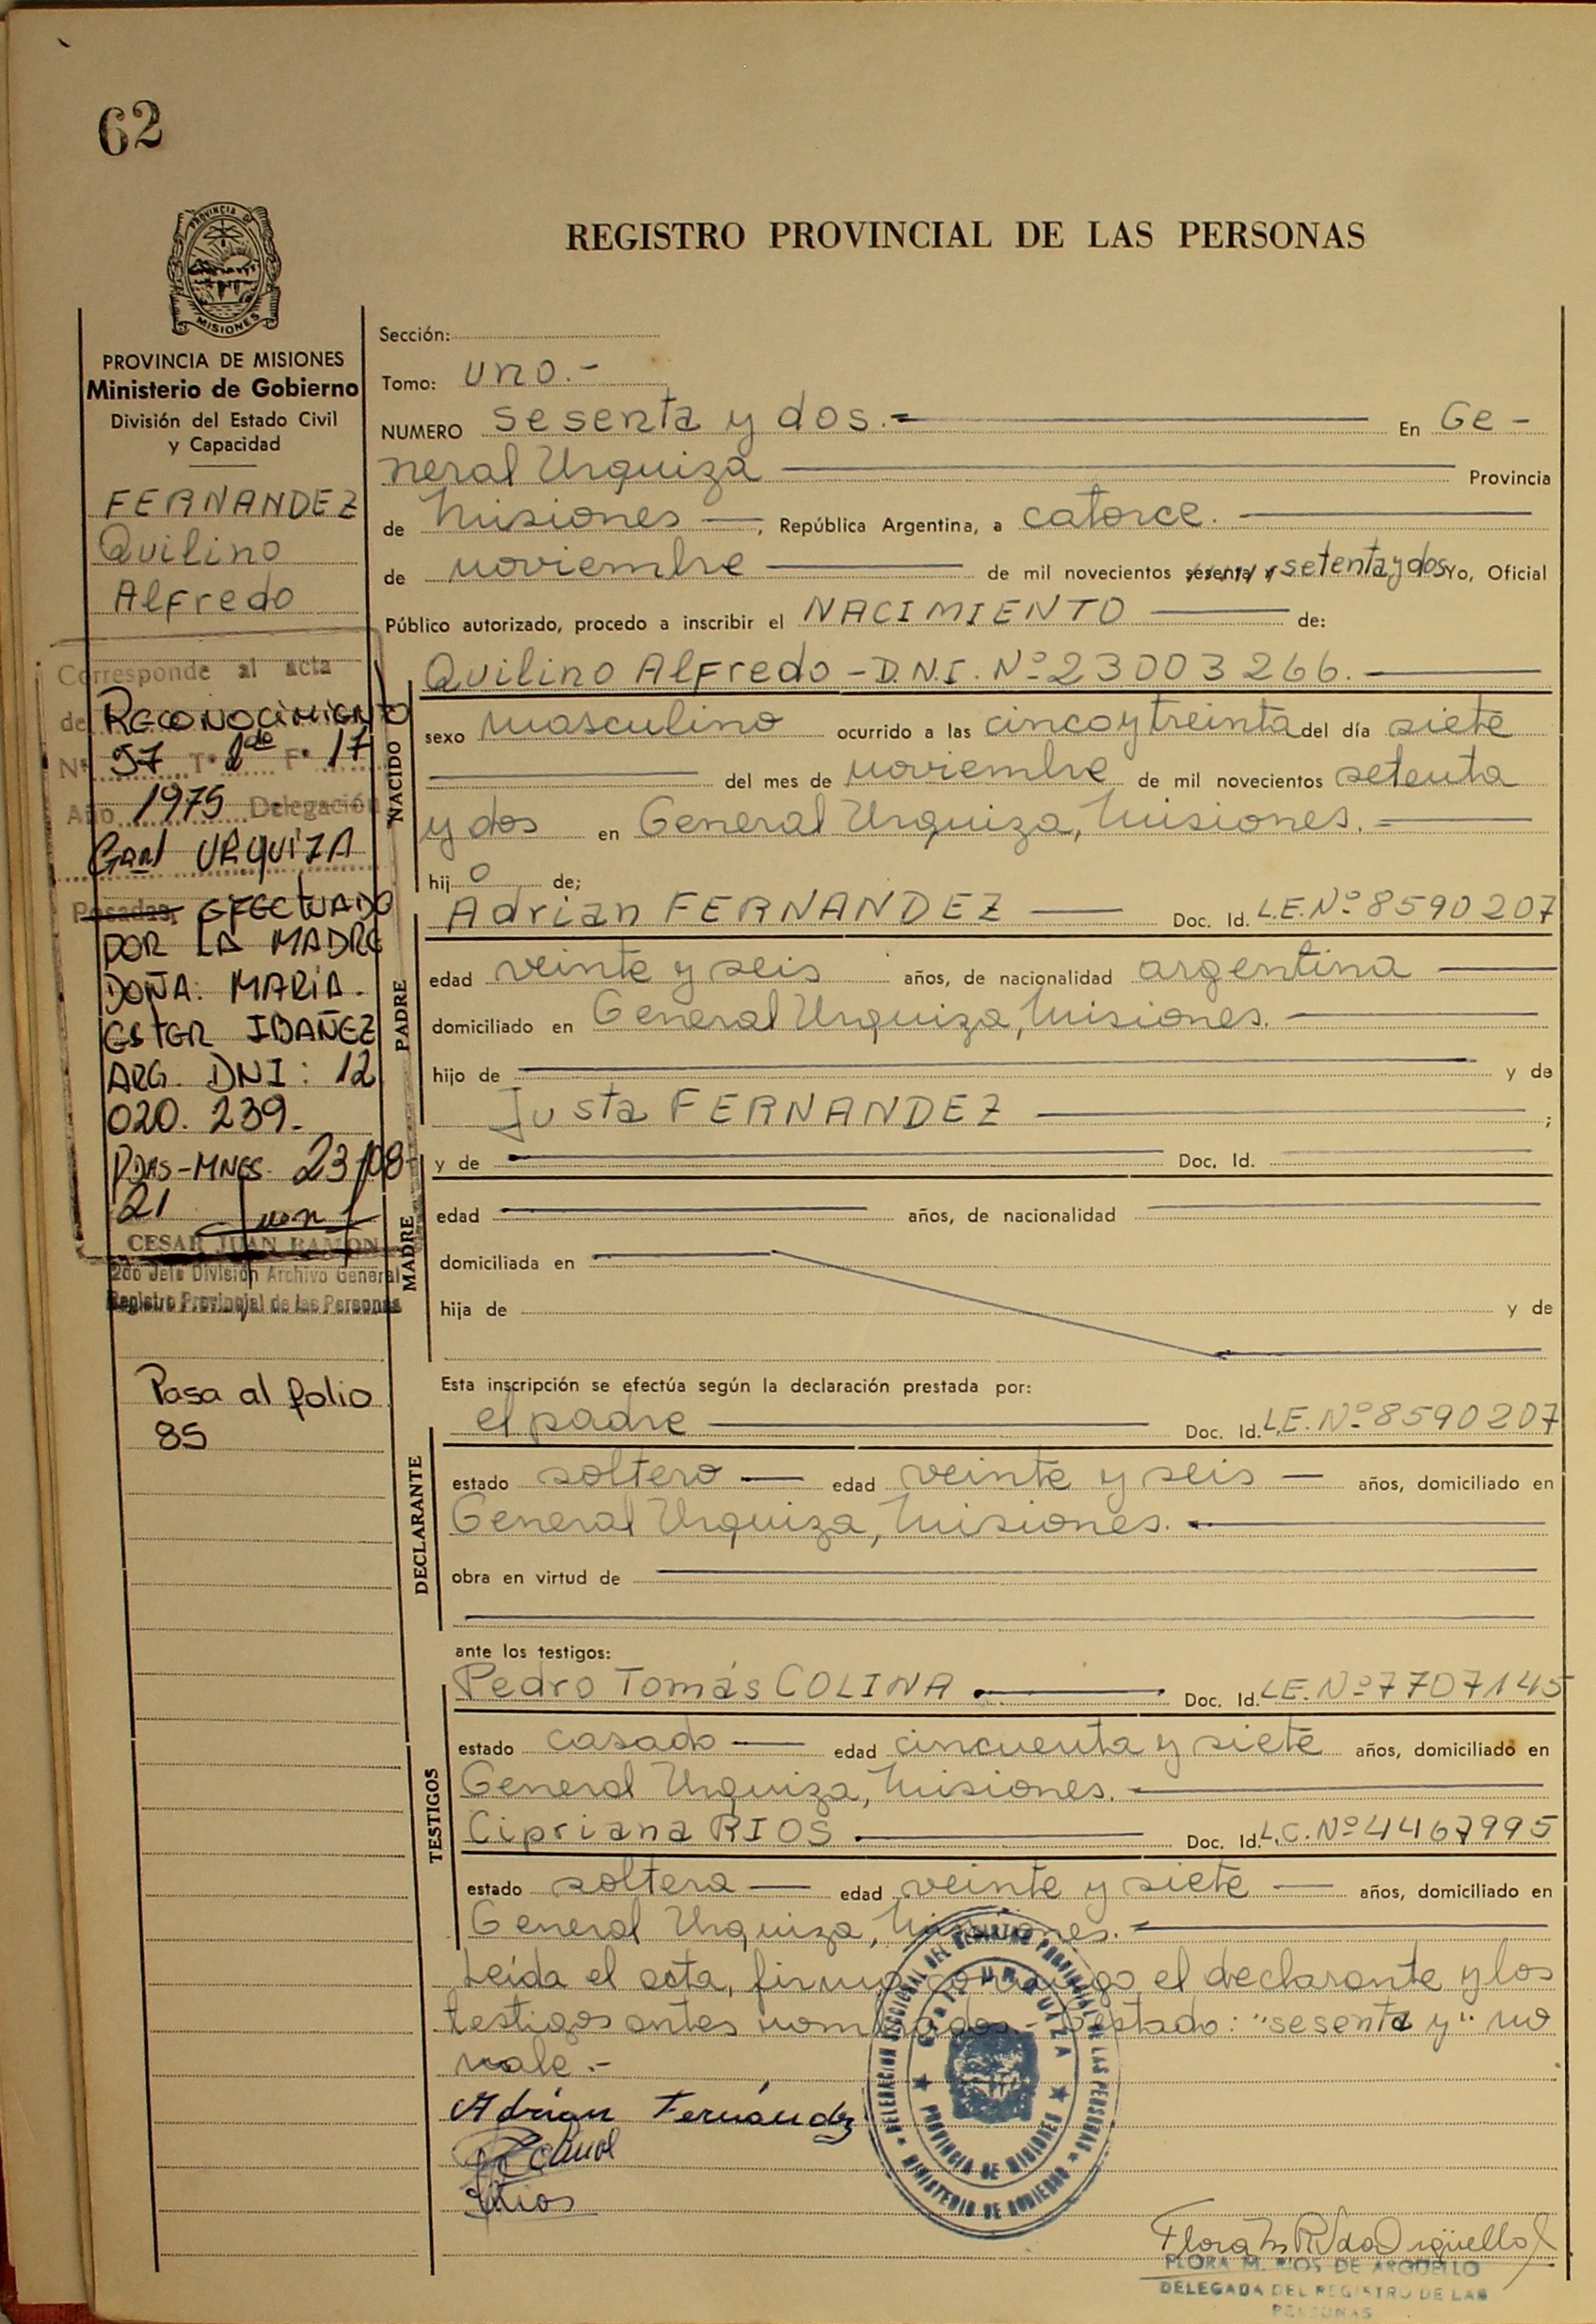 62
PROVINCIA DE
MISIONES
REGISTRO PROVINCIAL DE LAS PERSONAS
PROVINCIA DE MISIONES
Ministerio de Gobierno
División del Estado Civil
y Capacidad
FERNANDEZ
Quilino
Alfredo
Corresponde al acta
de RECONOCIMIENTO
Nº 97 Tº 1do Fº 17
Año 1975 Delegación
Gral URQUIZA
Posadas, EFECTUADO
POR LA MADRE
DOÑA: MARIA
ESTER IBAÑEZ
ARG. DNI: 12
020.239.-
PDAS-MNES. 23/08-
21
CESAR JUAN RAMON
2do Jefe División Archivo General
Registro Provincial de las Personas
Pasa al folio
85
Sección:
Tomo: uno.-
NUMERO sesenta y dos.- En Ge-
neral Urquiza Provincia
de Misiones, República Argentina, a catorce.
de noviembre de mil novecientos sesenta y setenta y dos Yo, Oficial
Público autorizado, procedo a inscribir el NACIMIENTO de:
Quilino Alfredo - D.N.I. Nº 23003266.
NACIDO
sexo masculino ocurrido a las cinco y treinta del día siete
del mes de noviembre de mil novecientos setenta
y dos en General Urquiza, Misiones.
hijo de;
Adrian FERNANDEZ Doc. Id. L.E. Nº 8590207
PADRE
edad veinte y seis años, de nacionalidad argentina
domiciliado en General Urquiza, Misiones.
hijo de y de
Justa FERNANDEZ ;
y de Doc. Id.
MADRE
edad años, de nacionalidad
domiciliada en
hija de y de
Esta inscripción se efectúa según la declaración prestada por:
el padre Doc. Id. L.E. Nº 8590207
DECLARANTE
estado soltero edad veinte y seis años, domiciliado en
General Urquiza, Misiones.
obra en virtud de
ante los testigos:
Pedro Tomás COLINA Doc. Id. L.E. Nº 7707145
TESTIGOS
estado casado edad cincuenta y siete años, domiciliado en
General Urquiza, Misiones.
Cipriana RIOS Doc. Id. L.C. Nº 4467995
estado soltera edad veinte y siete años, domiciliado en
General Urquiza, Misiones.
Leída el acta, firman conmigo el declarante y los
testigos antes nombrados.- Testado: "sesenta y" no
vale.-
Adrián Fernández
Rios
DELEGACION SECCIONAL DEL REGISTRO PROVINCIAL DE LAS PERSONAS
MINISTERIO DE GOBIERNO
GRAL URQUIZA
PROVINCIA DE MISIONES
Flora M R de Argüello
FLORA M. RIOS DE ARGUELLO
DELEGADA DEL REGISTRO DE LAS
PERSONAS